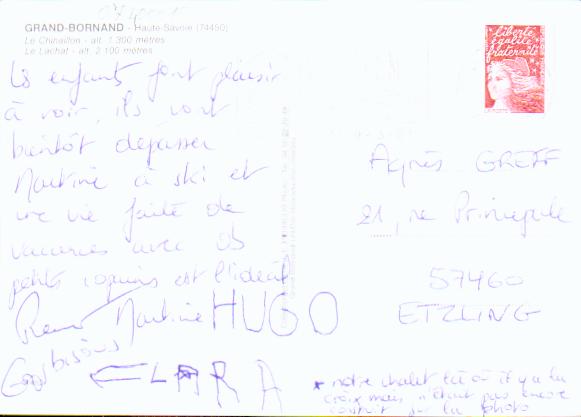 GRAND-BORNAND - Haute-Savoie (74450)
Le Chinaillon - alt. 1 300 mètres
Le Lachat - alt. 2 100 mètres
Les enfants font plaisir
à voir, ils vont
bientôt dépasser
Martine à ski et
une vie faite de
vacances avec ces
petits coquins est l'idéal
Martine HUGO
Gros bisous
LARA
liberté
égalité
fraternité
Agnès GREFF
21, rue Principale
57460
ETZLING
* notre chalet là où il y a la
croix mais n'était pas encore
construit sur la photo